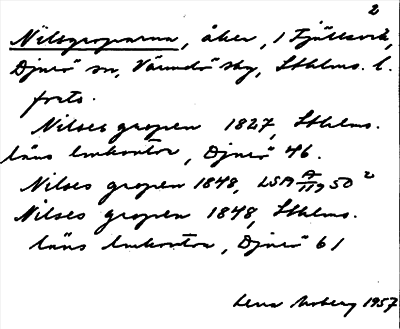 2
Nilsgroparna, åker, 1 Fjällsvik,
Djurö sn, Värmdö skg, Sthlms. l.
forts.
Nilses gropen 1827, Sthlms.
läns lmkontor, Djurö 46.
Nilses gropen 1848, LSA A 50²
Nilses gropen 1848, Sthlms.
läns lmkontor, Djurö 61
Lena Moberg 1957